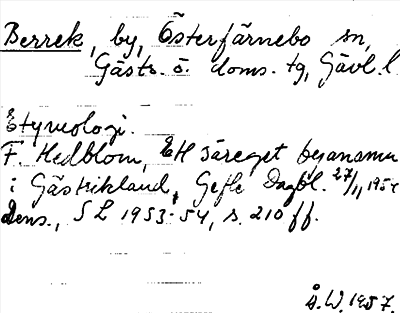 Berrek, by, Österfärnebo sn,
Gästr. ö. doms. tg, Gävl. l.
Etymologi.
F. Hedblom, Ett säreget bynamn
i Gästrikland, Gefle Dagbl. 27/11 1954
Dens., SL 1953-54, s. 210 ff.
Å.W. 1957.